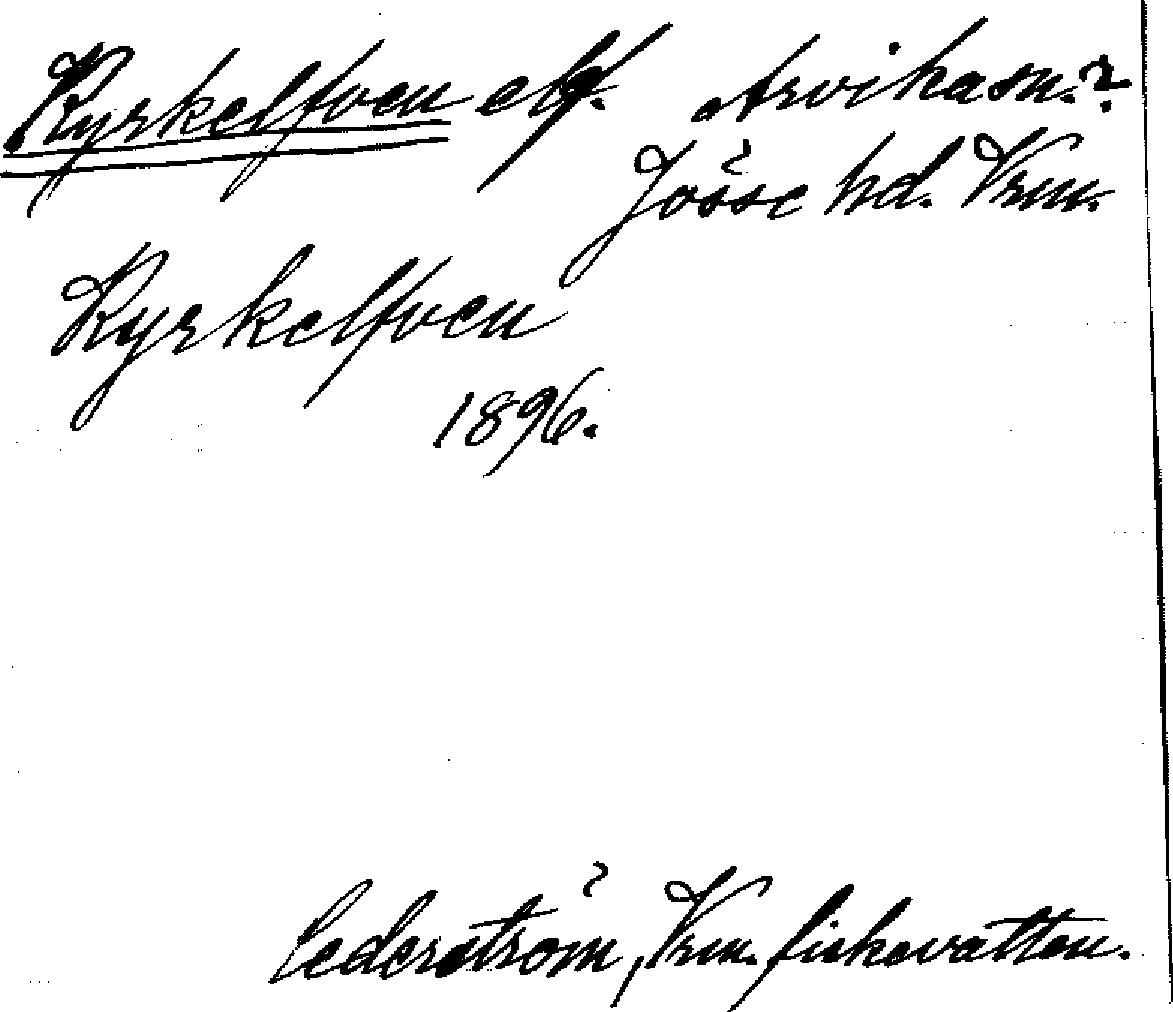 Kyrkelfven elf. Arvika sn.?
Jösse hd. Vrm.
Kyrkelfven
1896.
Cederström, Vrm. fiskevatten.